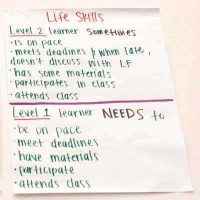 Life Skills
Level 2 learner Sometimes
· is on pace
· meets deadlines & when late,
doesn't discuss with LF
· has some materials
· participates in class
· attends class
Level 1 learner NEEDS to
· be on pace
· meet deadlines
· have materials
· participate
· attends class